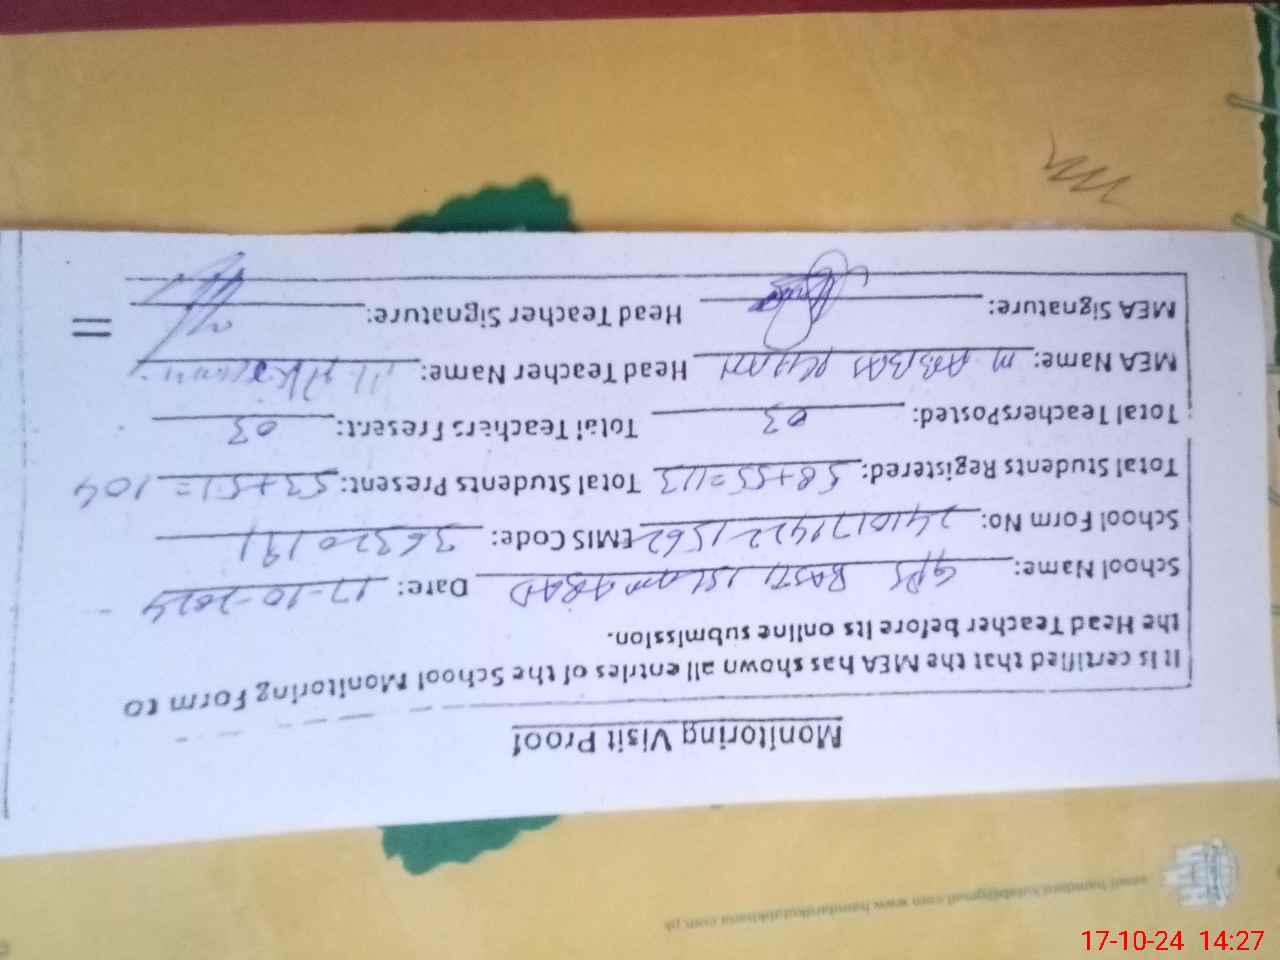 Monitoring Visit Proof
It is certified that the MEA has shown all entries of the School Monitoring Form to
the Head Teacher before its online submission.
School Name: GPS BASTI ISLAM ABAD Date: 17-10-2024
School Form No: EMIS Code: 36320191
Total Students Registered: 58+55=113 Total Students Present: 53+51=104
Total Teachers Posted: 03 Total Teachers Present: 03
MEA Name: M ABBAS Head Teacher Name:
MEA Signature: Head Teacher Signature:
17-10-24 14:27